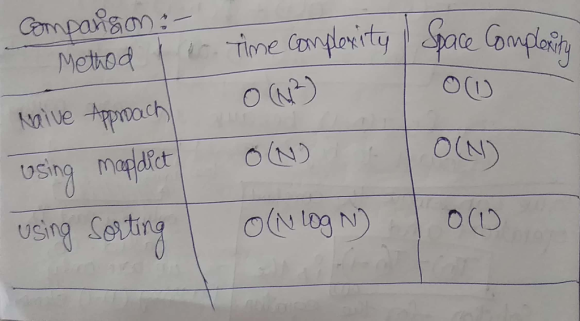 Comparision :-
Method Time Complexity Space Complexity
Naive Approach O(N²) O(1)
using map/dict O(N) O(N)
using Sorting O(N log N) O(1)